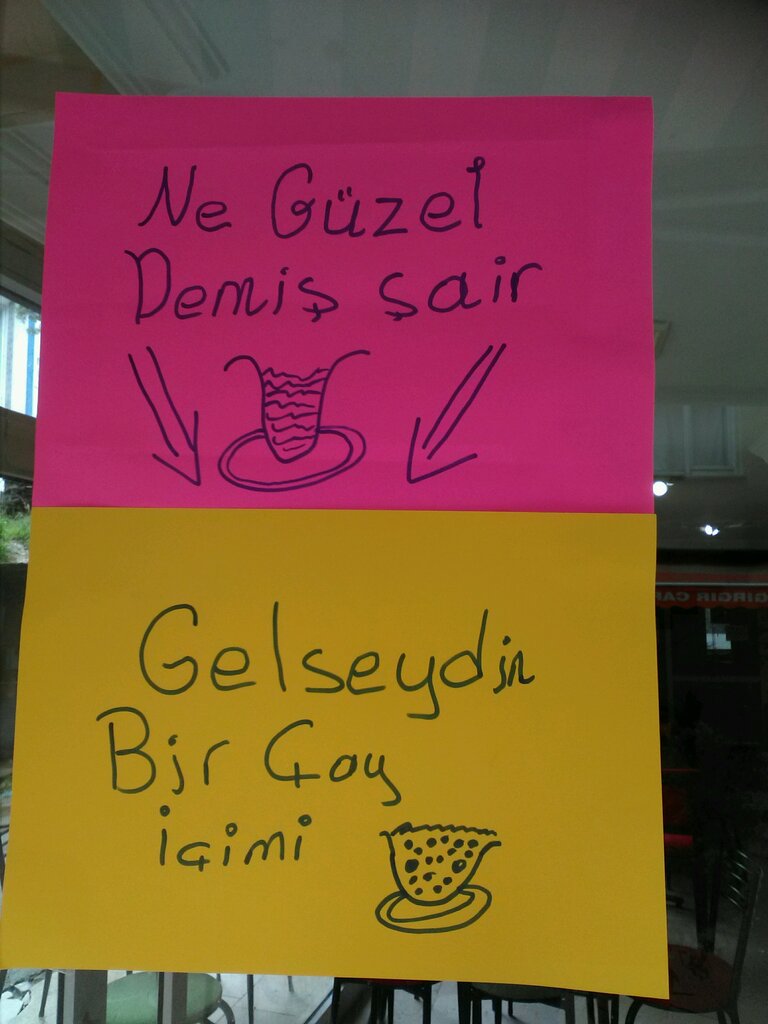 Ne Güzel
Demiş şair
Gelseydin
Bir Çay
içimi